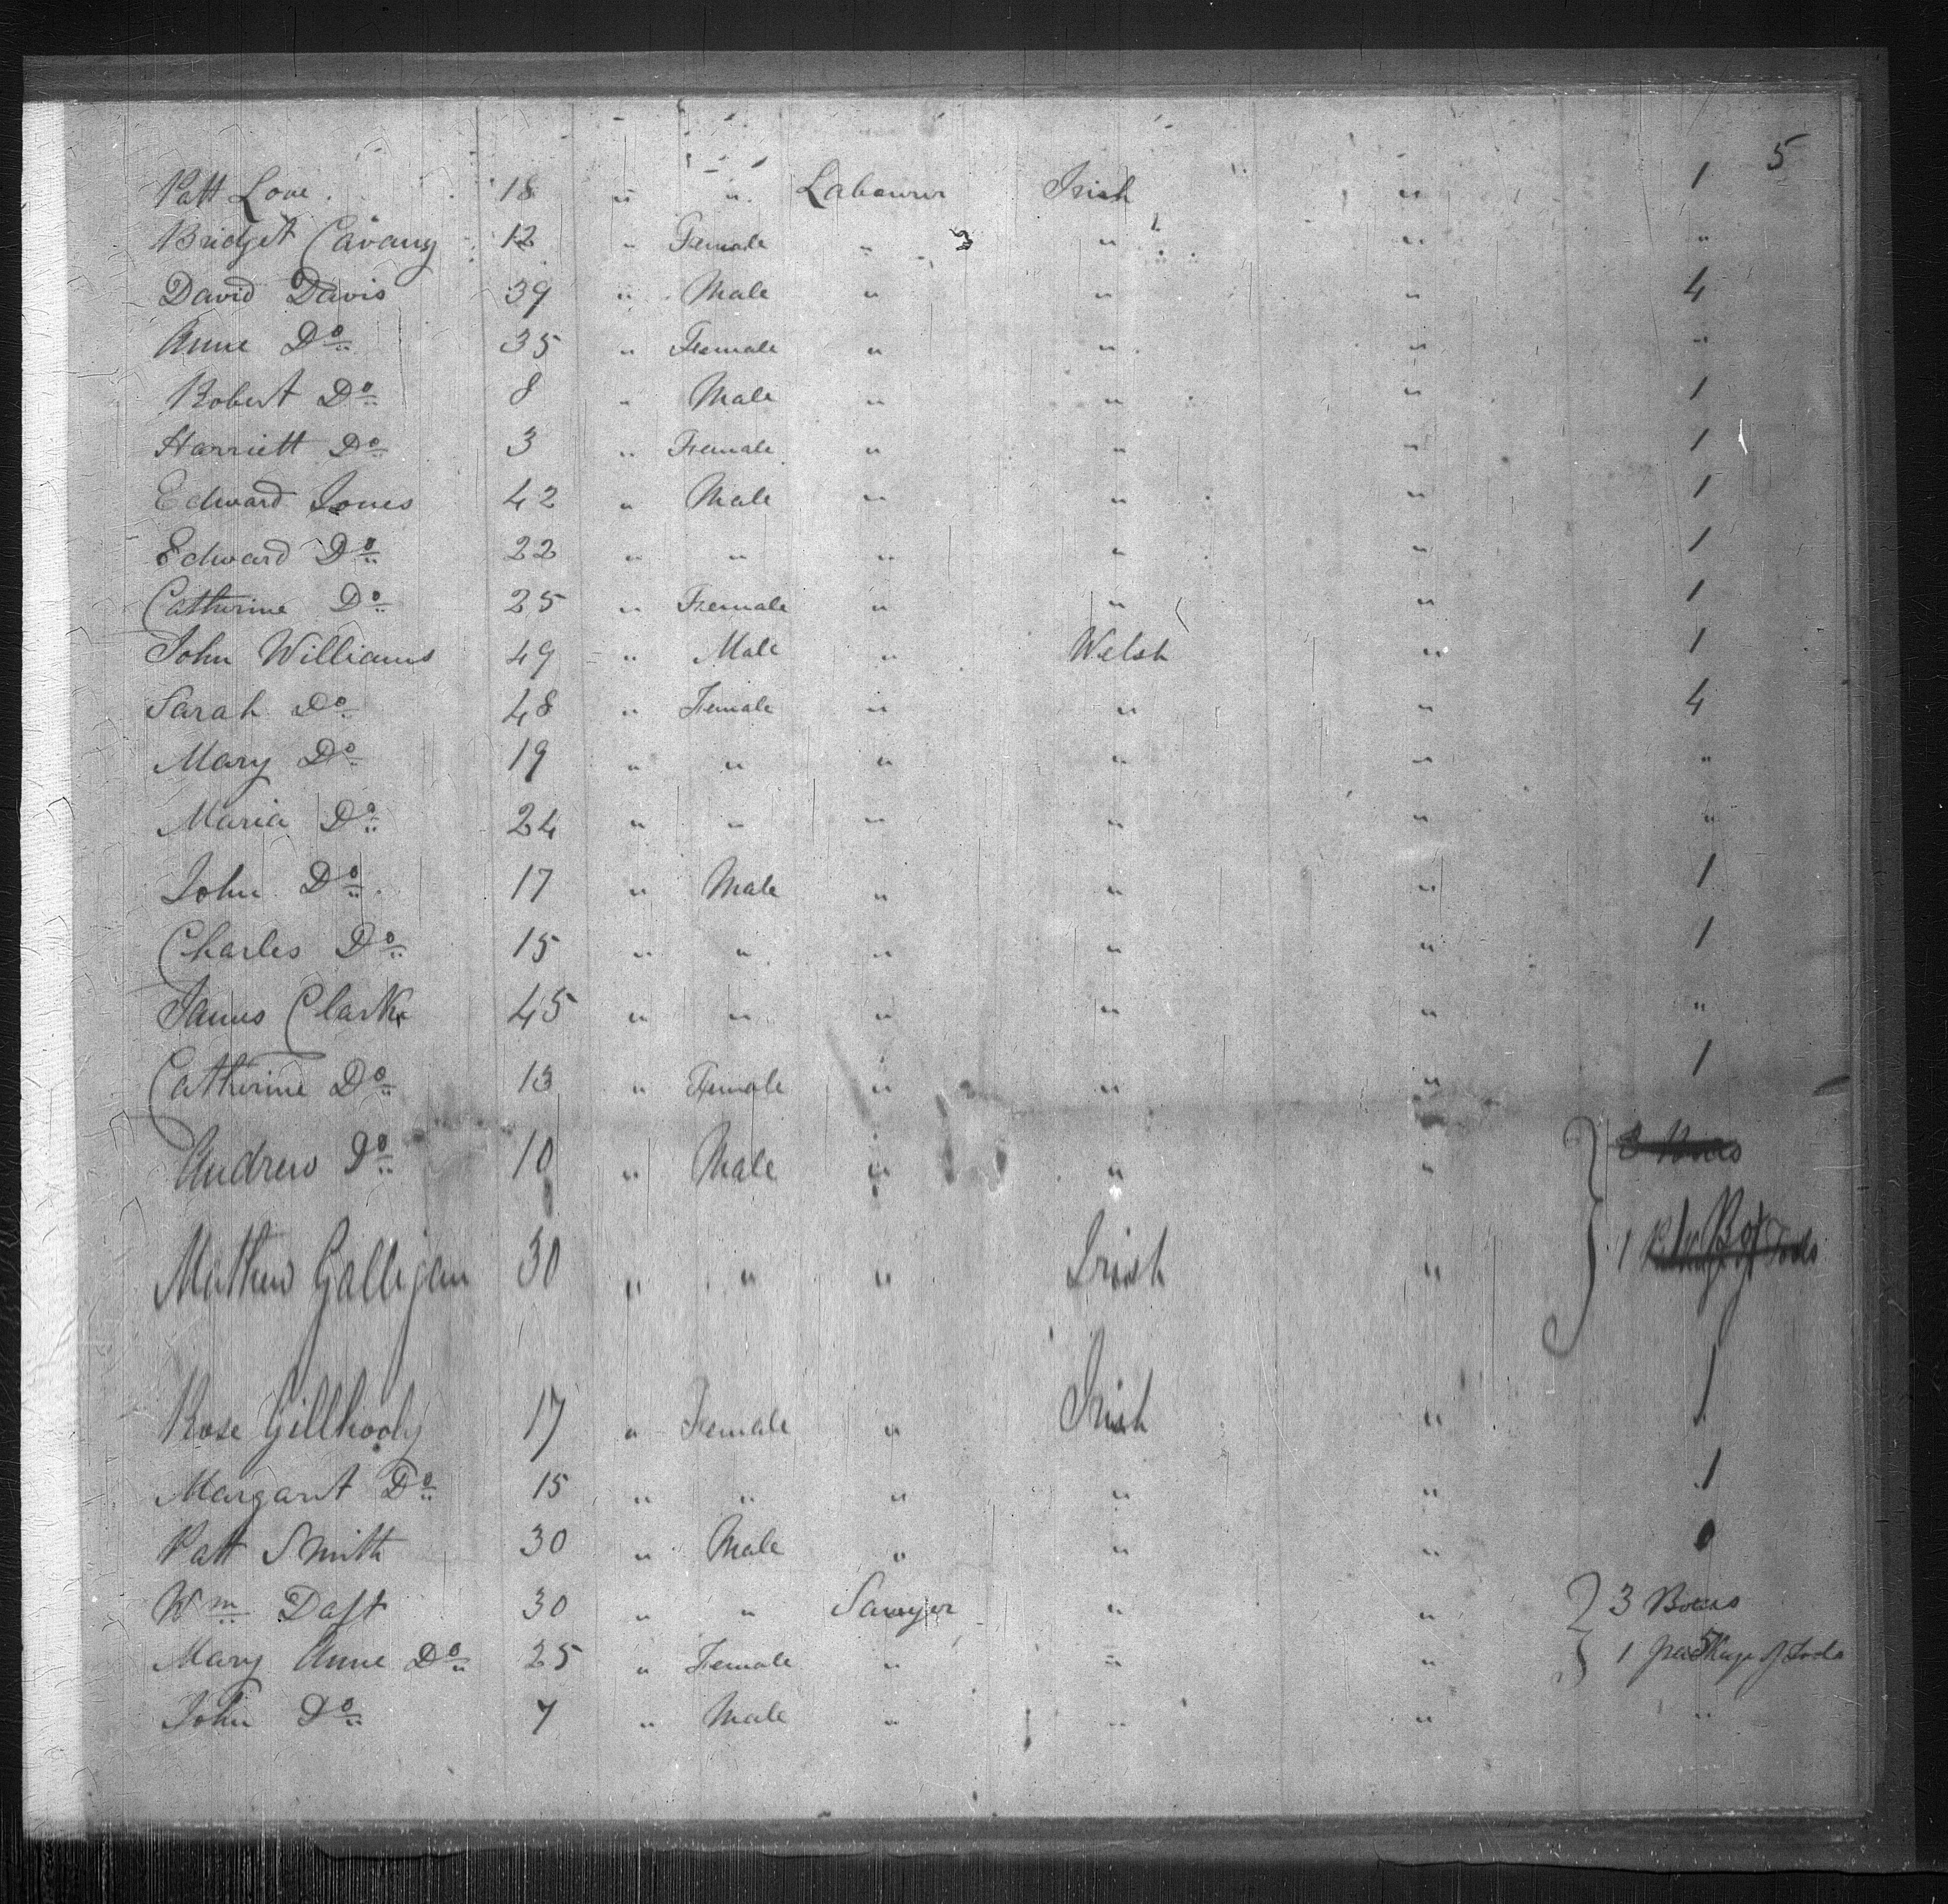 5
Patt Love 18 " " Labourer Irish " 1
Bridget Cavany 12 " Female " 3 " " "
David Davis 39 " Male " " " 4
Anne Do 35 " Female " " " "
Robert Do 8 " Male " " " 1
Harriett Do 3 " Female " " " 1
Edward Jones 42 " Male " " " 1
Edward Do 22 " " " " " 1
Catherine Do 25 " Female " " " 1
John Williams 49 " Male " Welsh " 1
Sarah Do 48 " Female " " " 4
Mary Do 19 " " " " " "
Maria Do 24 " " " " " "
John Do 17 " Male " " " 1
Charles Do 15 " " " " " 1
James Clark 45 " " " " " "
Catherine Do 13 " Female " " " 1
Andrew Do 10 " Male " " " 3 Boxes
Mathew Galligan 30 " " " Irish " 1 Box
Rose Gillhooly 17 " Female " Irish " 1
Margaret Do 15 " " " " " 1
Patt Smith 30 " Male " " " 0
Wm Daft 30 " " Sawyer " " 3 Boxes
Mary Anne Do 25 " Female " " " 1 package of Tools
John Do 7 " Male " " " "